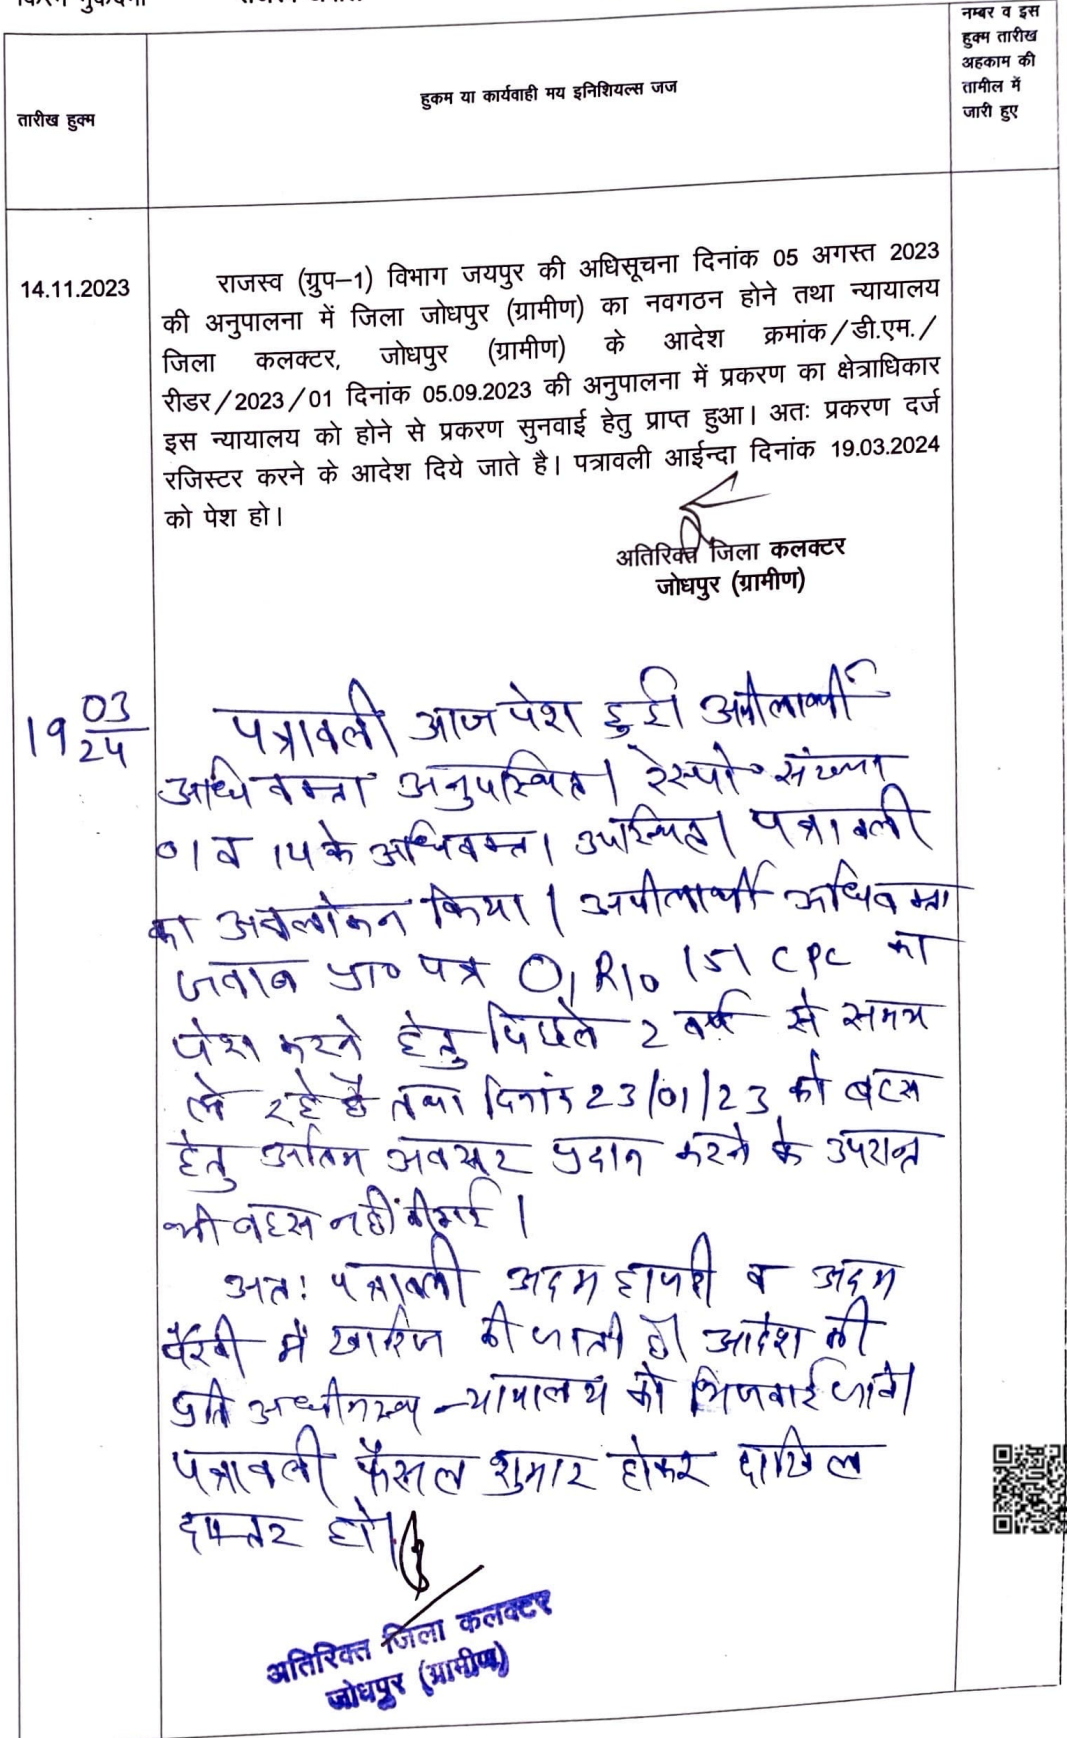 नम्बर व इस
हुक्म तारीख
अहकाम की
तामील में
जारी हुए
तारीख हुक्म
हुकम या कार्यवाही मय इनिशियल्स जज
14.11.2023
राजस्व (ग्रुप–1) विभाग जयपुर की अधिसूचना दिनांक 05 अगस्त 2023
की अनुपालना में जिला जोधपुर (ग्रामीण) का नवगठन होने तथा न्यायालय
जिला कलक्टर, जोधपुर (ग्रामीण) के आदेश क्रमांक/डी.एम./
रीडर/2023/01 दिनांक 05.09.2023 की अनुपालना में प्रकरण का क्षेत्राधिकार
इस न्यायालय को होने से प्रकरण सुनवाई हेतु प्राप्त हुआ। अतः प्रकरण दर्ज
रजिस्टर करने के आदेश दिये जाते है। पत्रावली आईन्दा दिनांक 19.03.2024
को पेश हो।
अतिरिक्त जिला कलक्टर
जोधपुर (ग्रामीण)
19 03/24
पत्रावली आज पेश हुई। अपीलार्थी
अधिवक्ता अनुपस्थित। रेस्पो० संख्या
01 व 14 के अधिवक्ता उपस्थित। पत्रावली
का अवलोकन किया। अपीलार्थी अधिवक्ता
जवाब प्रा० पत्र O1 R10 151 CPC का
पेश करने हेतु पिछले 2 वर्ष से समय
ले रहे है तथा दिनांक 23/01/23 को बहस
हेतु अंतिम अवसर प्रदान करने के उपरान्त
भी बहस नहीं की गई।
अतः पत्रावली अदम हाजरी व अदम
पैरवी में खारिज की जाती है। आदेश की
प्रति अधीनस्थ न्यायालय को भिजवाई जावे।
पत्रावली फैसल शुमार होकर दाखिल
दफ्तर हो।
अतिरिक्त जिला कलक्टर
जोधपुर (ग्रामीण)